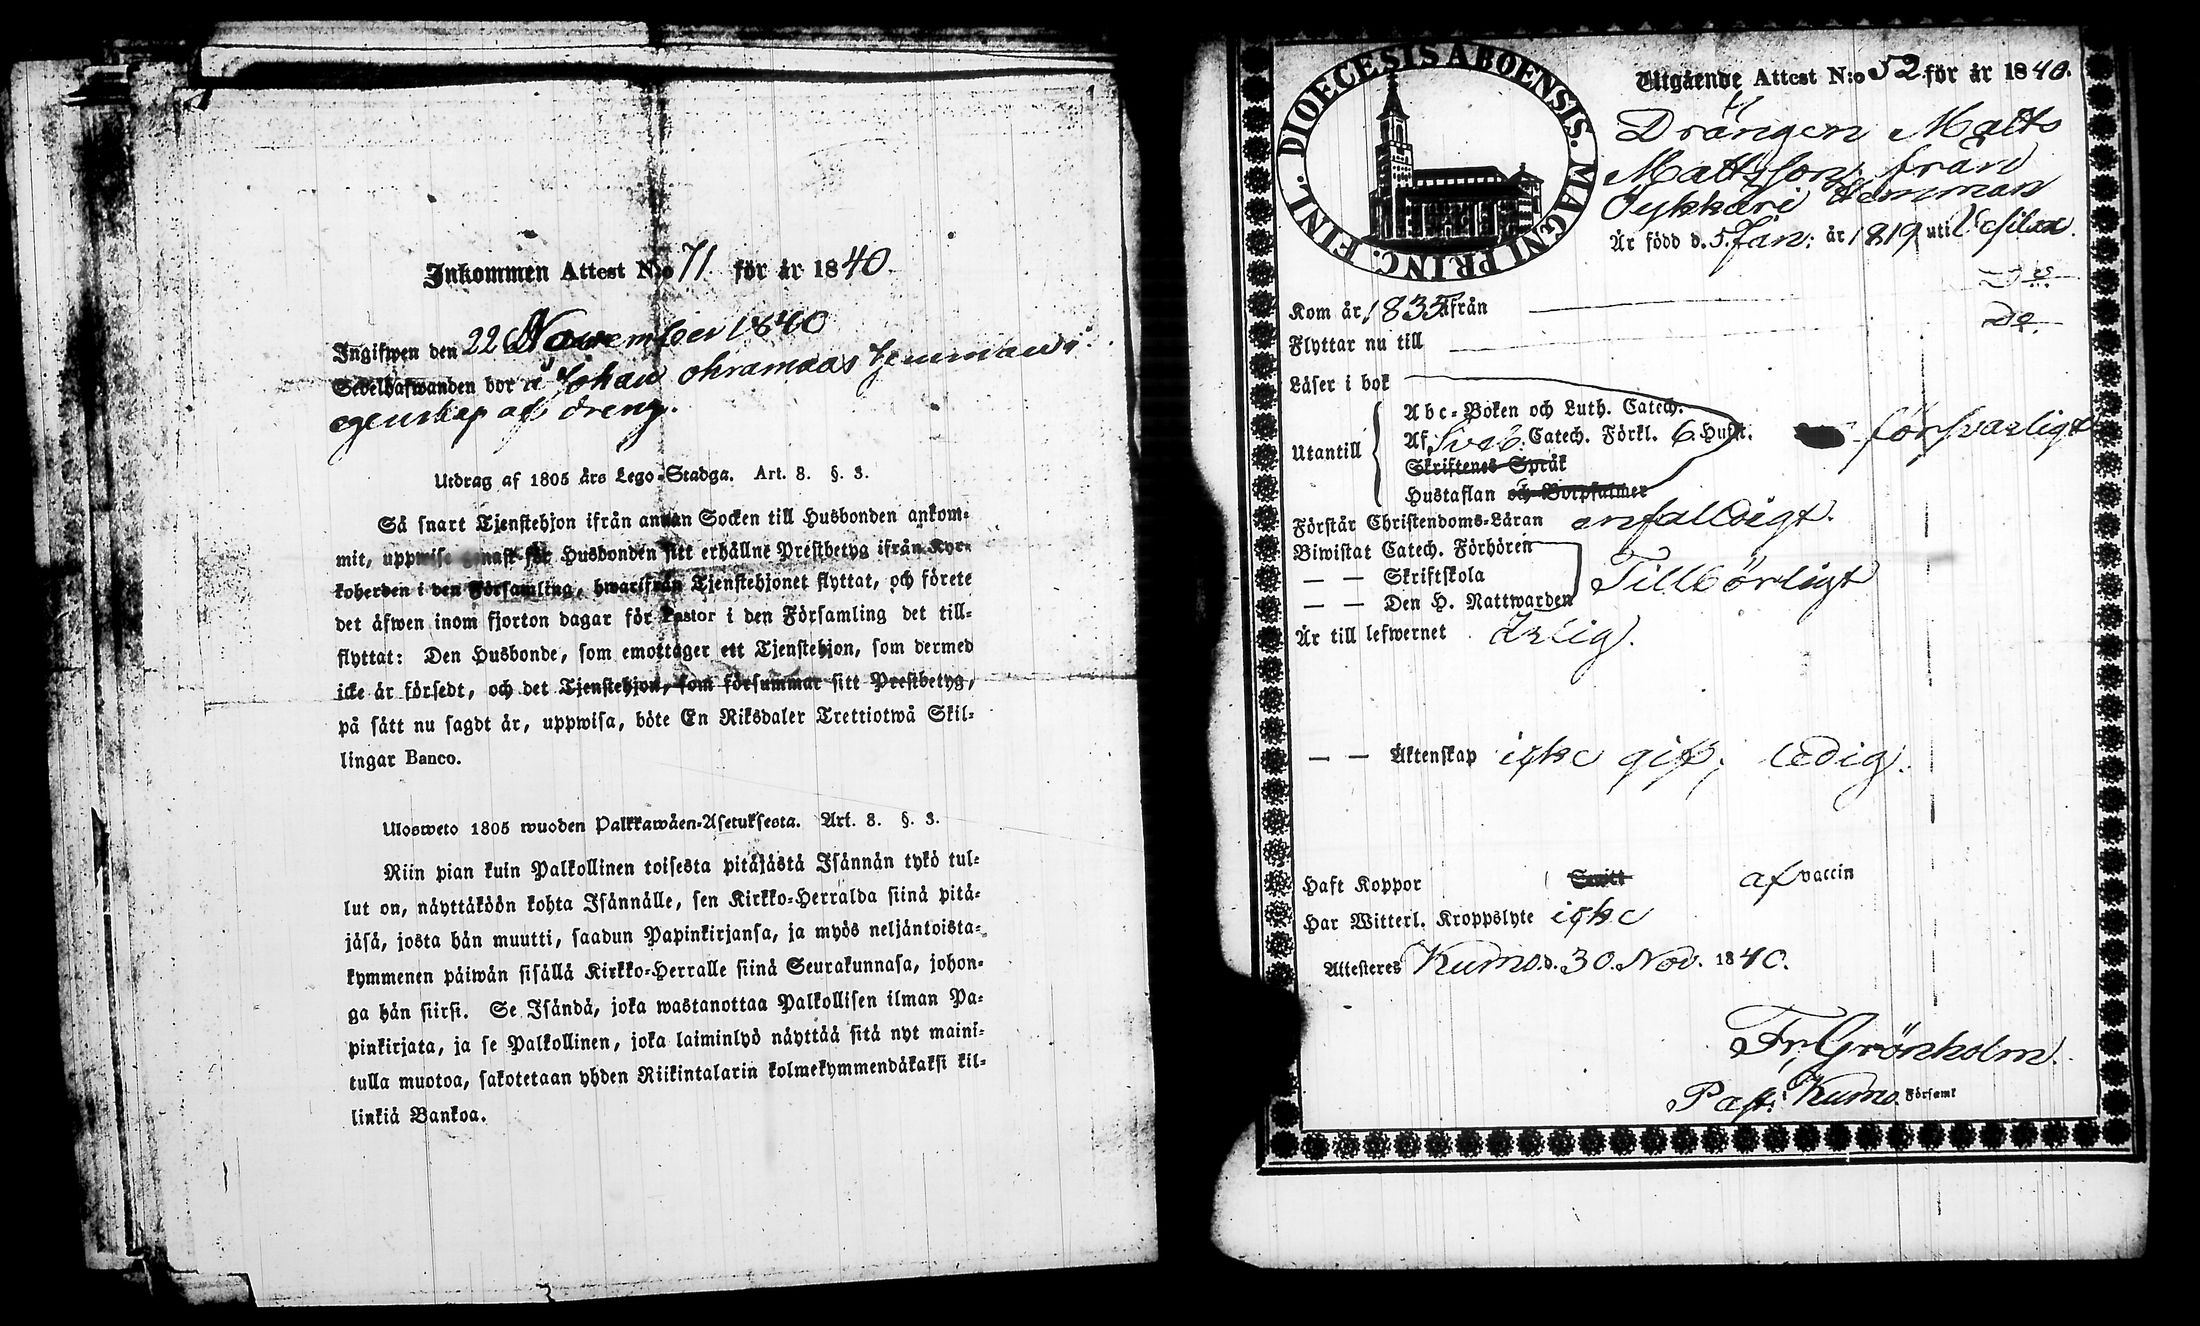 Inkommen Attest N:o 71 för år 1840.
Ingifwen den 22 November 1840
Sedelhafwanden bor å Johan ohramaas hemman i
egenskap af dreng.
Utdrag af 1805 års Lego-Stadga. Art. 8. §. 3.
Så snart Tjenstehjon ifrån annan Socken till Husbonden ankom-
mit, uppwise genast för Husbonden sitt erhållne Prestbetyg ifrån Kyr-
koherden i den Församling, hwarifrån Tjenstehjonet flyttat, och förete
det äfwen inom fjorton dagar för Pastor i den Församling det till-
flyttat: Den Husbonde, som emottager ett Tjenstehjon, som dermed
icke är försedt, och det Tjenstehjon, som försummar sitt Prestbetyg,
på sätt nu sagdt är, uppwisa, böte En Riksdaler Trettiotwå Skil-
lingar Banco.
Ulosweto 1805 wuoden Palkkawäen-Asetuksesta. Art. 8. §. 3.
Niin pian kuin Palkollinen toisesta pitäjästä Isännän tykö tul-
lut on, näyttäköön kohta Isännälle, sen Kirkko-Herralda siinä pitä-
jäsä, josta hän muutti, saadun Papinkirjansa, ja myös neljäntoista-
kymmenen päiwän sisällä Kirkko-Herralle siinä Seurakunnasa, johon-
ga hän siirsi. Se Isändä, joka wastanottaa Palkollisen ilman Pa-
pinkirjata, ja se Palkollinen, joka laiminlyö näyttää sitä nyt maini-
tulla muotoa, sakotetaan yhden Riikintalarin kolmekymmendäkaksi kil-
linkiä Bankoa.
DIOECESIS ABOENSIS. MAGNI PRINC. FINL.
Utgående Attest N:o 52 för år 1840.
Drängen Matts
Mattsson från
Öykkäri hemman
Är född d. 5. Jan: år 1819 uti Vesilax.
Kom år 1835 ifrån De
Flyttar nu till De
Läser i bok
Utantill
Abc-Boken och Luth. Catech.
Af Sveb. Catech. Förkl. 6 Hufst. försvarligt
Skriftenes Språk
Hustaflan och Botpsalmer
Förstår Christendoms-Läran enfalldigt.
Biwistat Catech. Förhören
— — Skriftskola Tillbörligt
— — Den H. Nattwarden
Är till lefwernet Ärlig.
— — Äktenskap icke gift; ledig.
Haft Koppor Smitt af vaccin
Har Witterl. Kroppslyte icke
Attesteres Kumo d. 30. Nov. 1840.
Fr. Grönholm.
Past: Kumo. Församl